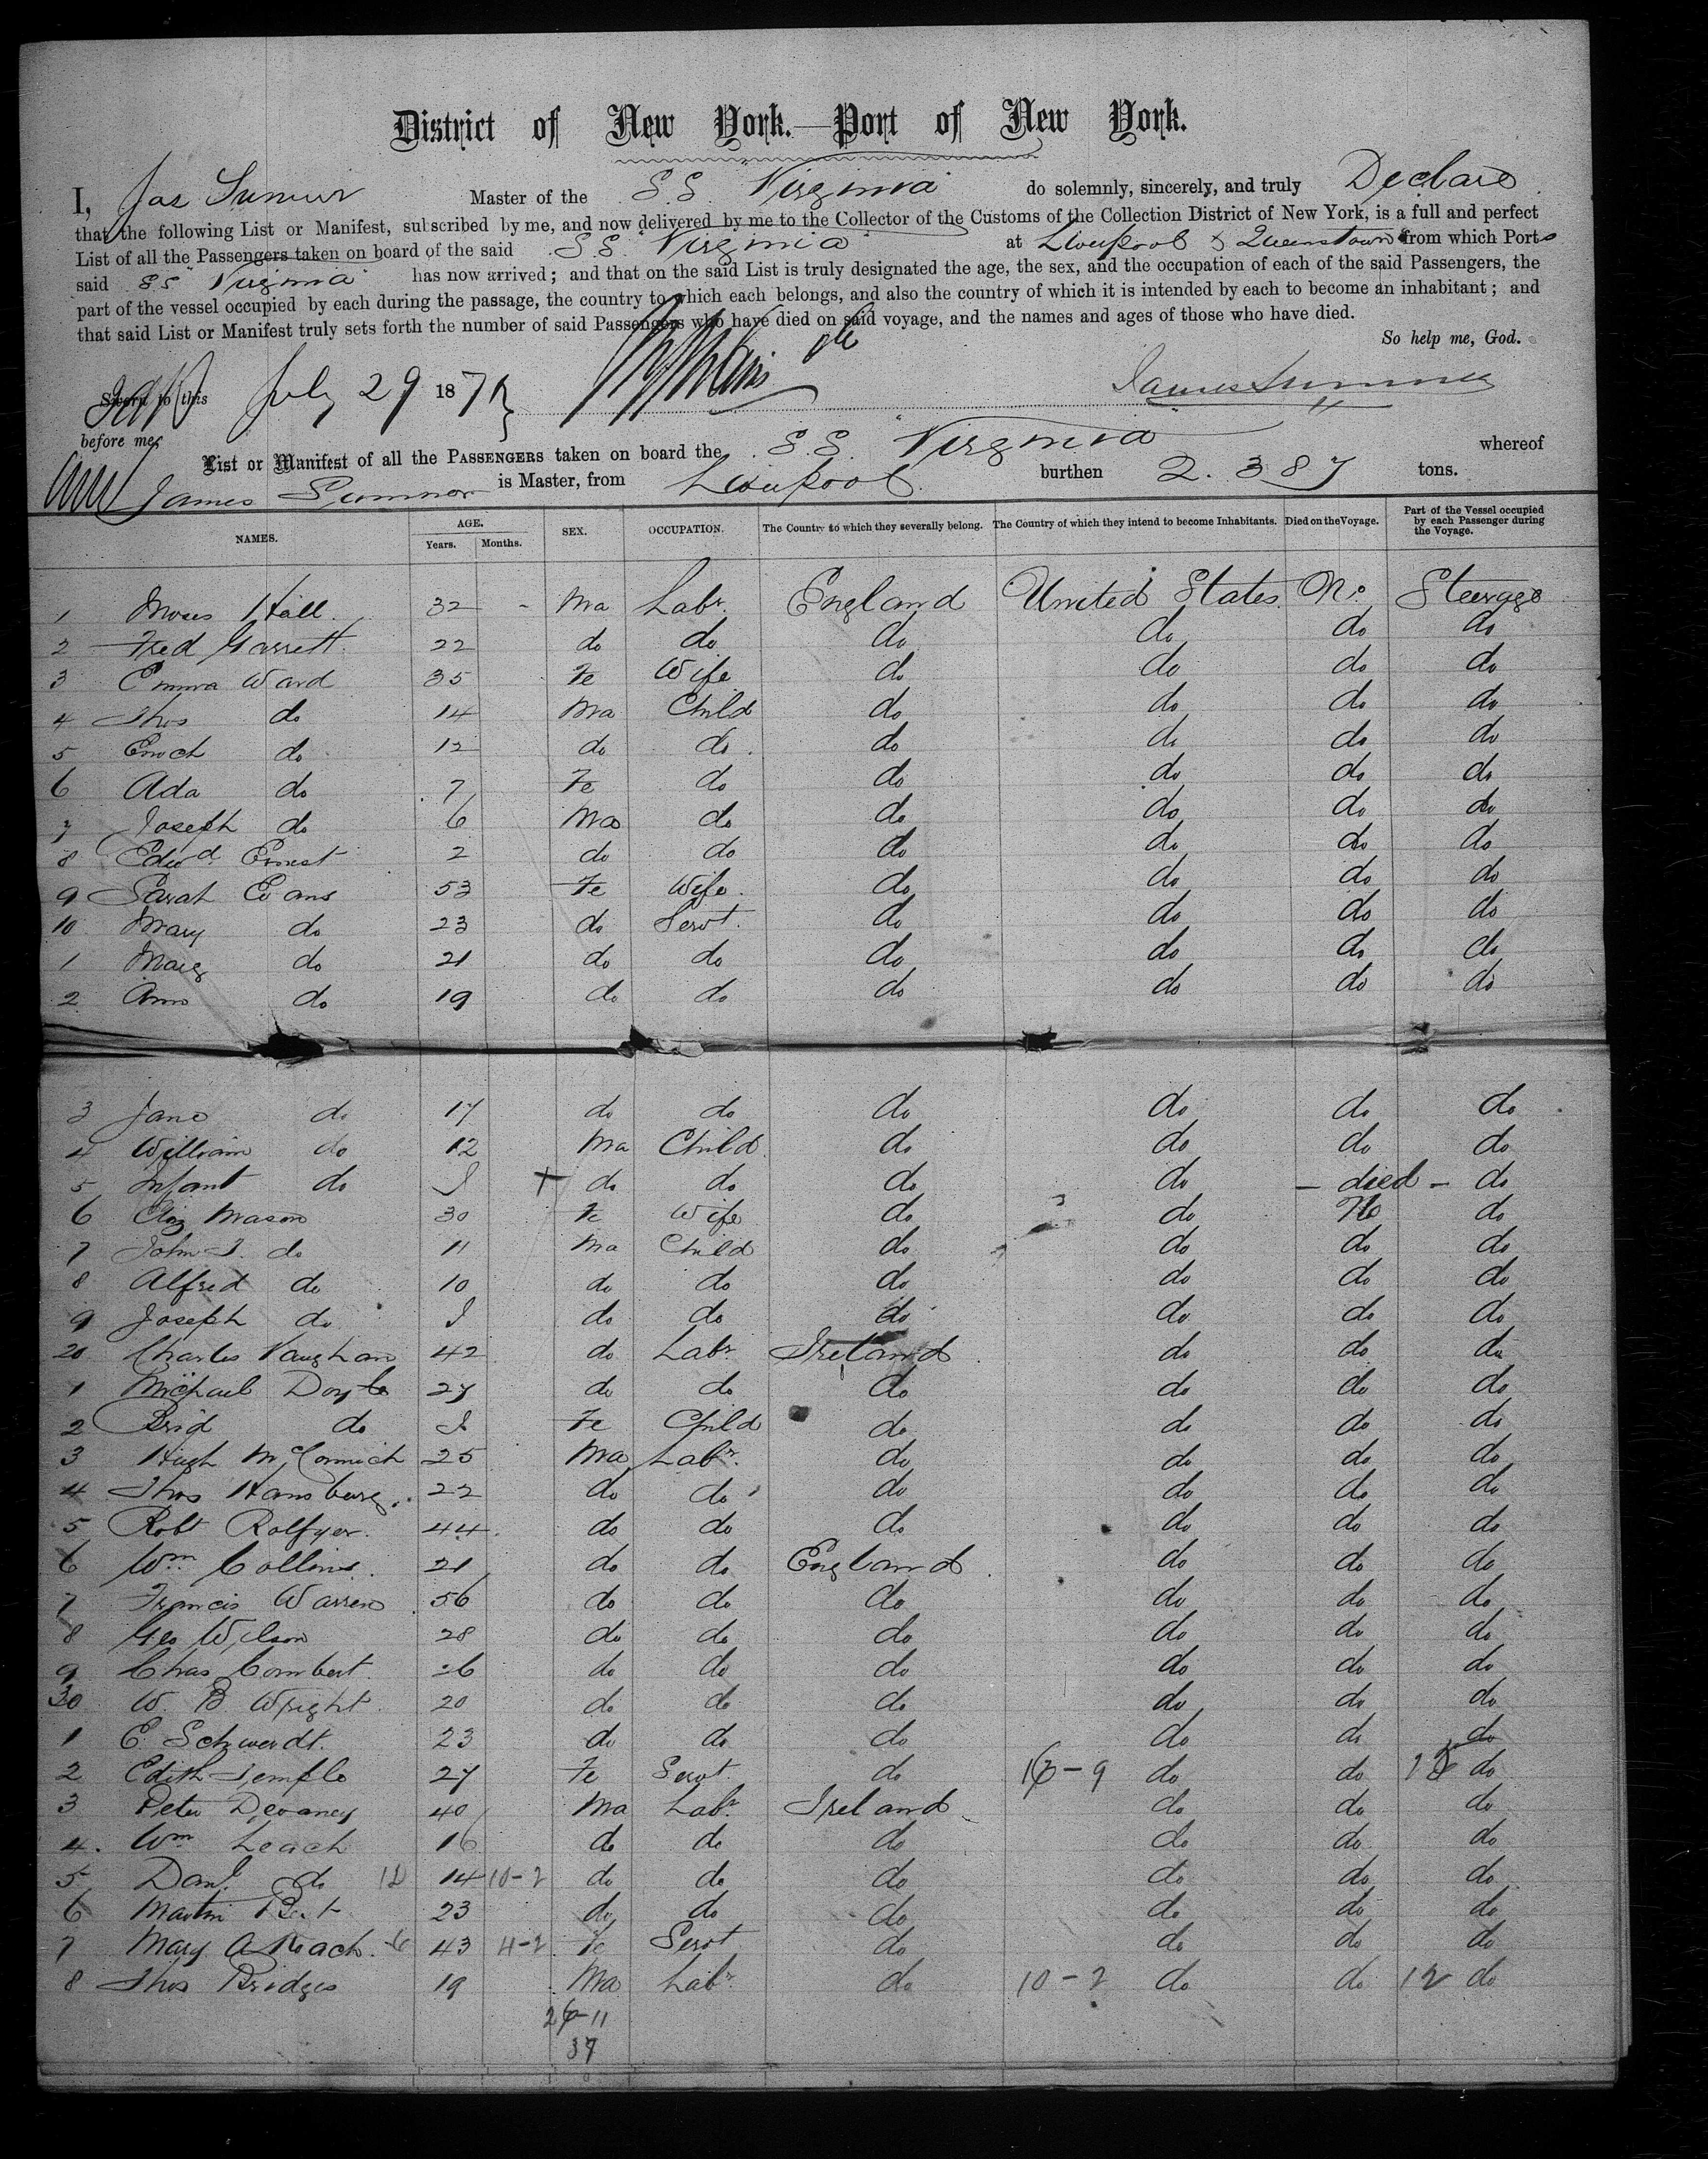 District of New York.—Port of New York.
I, Jas Sumner Master of the S.S. "Virginia" do solemnly, sincerely, and truly Declare
that the following List or Manifest, subscribed by me, and now delivered by me to the Collector of the Customs of the Collection District of New York, is a full and perfect
List of all the Passengers taken on board of the said S.S. "Virginia" at Liverpool & Queenstown from which Ports
said SS "Virginia" has now arrived; and that on the said List is truly designated the age, the sex, and the occupation of each of the said Passengers, the
part of the vessel occupied by each during the passage, the country to which each belongs, and also the country of which it is intended by each to become an inhabitant; and
that said List or Manifest truly sets forth the number of said Passengers who have died on said voyage, and the names and ages of those who have died.
So help me, God.
Sworn to this July 29 187 James Sumner
before me,
List or Manifest of all the PASSENGERS taken on board the S.S. "Virginia" whereof
James Sumner is Master, from Liverpool burthen 2.387 tons.
NAMES. AGE. Years. Months. SEX. OCCUPATION. The Country to which they severally belong. The Country of which they intend to become Inhabitants. Died on the Voyage. Part of the Vessel occupied by each Passenger during the Voyage.
1 Moses Hall 32 - Ma Labr. England United States No Steerage
2 Fred Garrett 22 do do do do do do
3 Emma Ward 35 Fe Wife do do do do
4 Thos do 14 Ma Child do do do do
5 Enoch do 12 do do do do do do
6 Ada do 7 Fe do do do do do
7 Joseph do 6 Ma do do do do do
8 Edwd Ernest 2 do do do do do do
9 Sarah Evans 53 Fe Wife do do do do
10 Mary do 23 do Servt. do do do do
1 Marg do 21 do do do do do do
2 Ann do 19 do do do do do do
3 Jane do 17 do do do do do do
4 William do 12 Ma Child do do do do
5 Infant do I + do do do do - died - do
6 Eliz Mason 30 Fe Wife do do No do
7 John T. do 11 Ma Child do do do do
8 Alfred do 10 do do do do do do
9 Joseph do I do do do do do do
20 Charles Vaughan 42 do Labr Ireland do do do
1 Michael Doyle 27 do do do do do do
2 Brid do I Fe Child do do do do
3 Hugh McCormick 25 Ma Labr. do do do do
4 Thos Hansburg 22 do do do do do do
5 Robt Rolfyer 44 do do do do do do
6 Wm Collins 21 do do England do do do
7 Francis Warren 56 do do do do do do
8 Geo Wilson 28 do do do do do do
9 Chas Combert 26 do do do do do do
30 W B Wright 20 do do do do do do
1 E Schwerdt 23 do do do do do do
2 Edith Temple 27 Fe Servt do - 9 do do do
3 Peter Devaney 40 Ma Labr Ireland do do do
4. Wm Leach 16 do do do do do do
5 Danl do 12 14 10-2 do do do do do do
6 Martin 23 do do do do do do
7 Mary A Roach 43 4-2 Fe Servt do do do do
8 Thos Bridges 19 Ma Labr do 10-2 do do 12 do
26-11
37